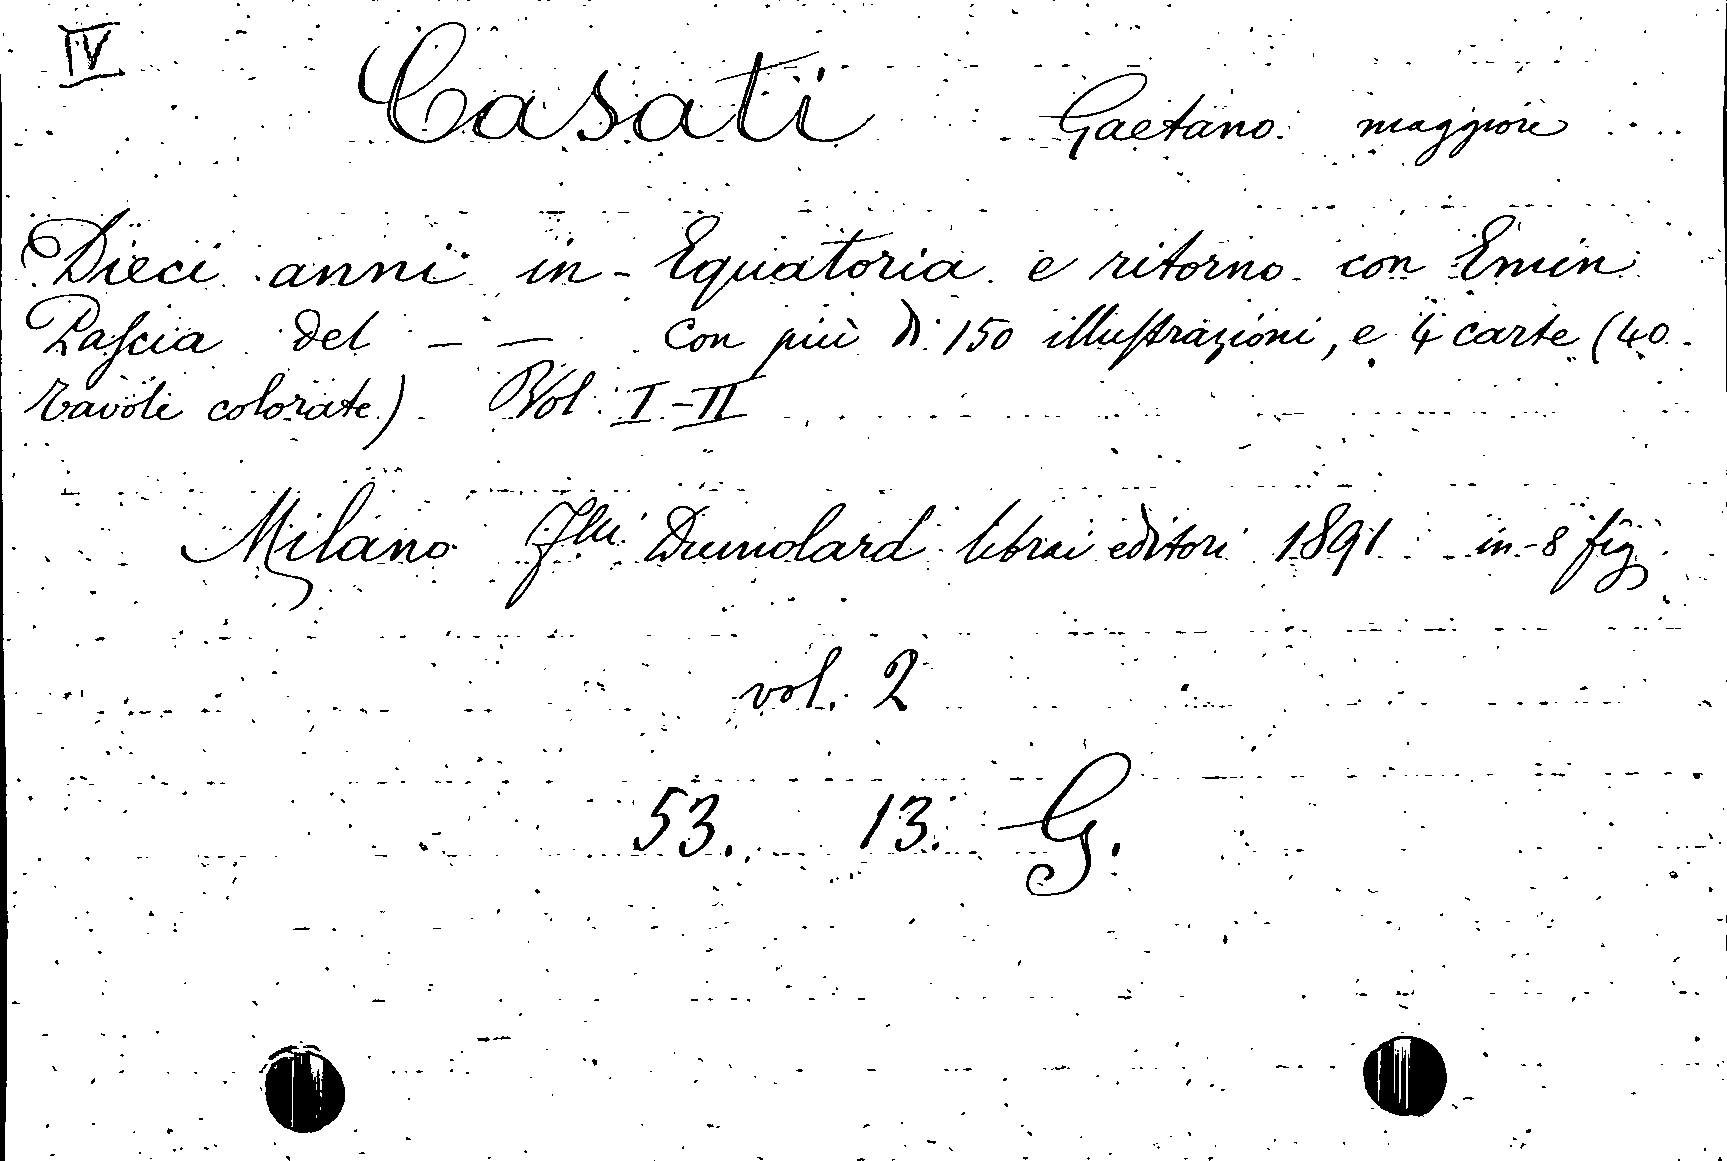 IV
Casati Gaetano maggiore
Dieci anni in Equatoria e ritorno con Emin
Pascia del — — Con più di 150 illustrazioni, e 4 carte (40
tavole colorate) Vol. I-II
Milano Flli Dumolard librai editori 1891 in-8 fig
vol. 2
53. 13. G.